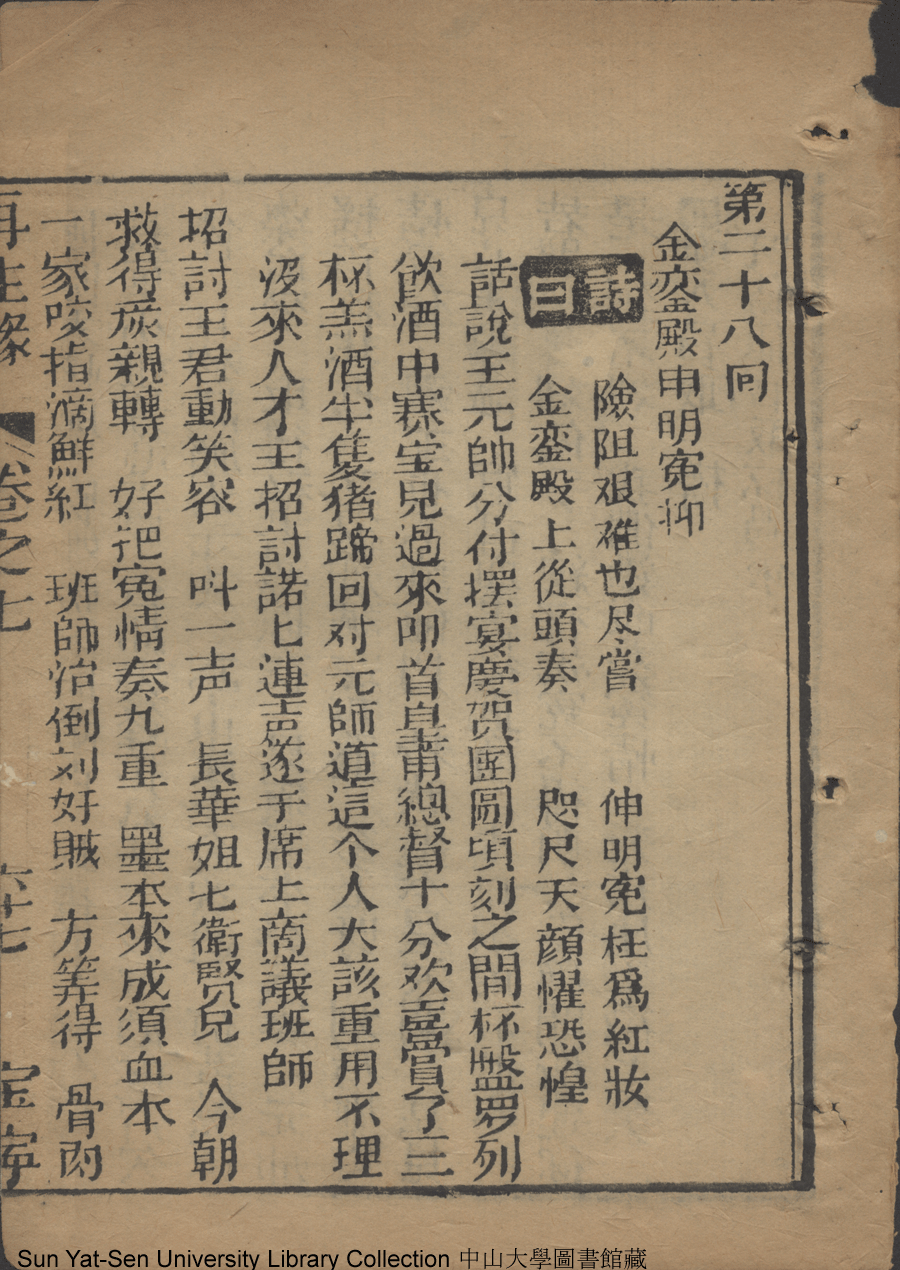 第二十八回
金銮殿申明寃抑
詩曰
險阻艰难也尽嘗 伸明寃枉爲紅妝
金銮殿上從頭奏 咫尺天顔懼恐惶
話說王元帥分付摆宴慶贺團圓頃刻之間杯盤罗列
飲酒中賽宝見過來叩首皇甫總督十分欢喜賞了三
杯羔酒半隻猪蹄回对元师道這个人大該重用不理
没來人才王招討諾匕連声遂于席上商議班師
招討王君動笑容 叫一声 長華姐七衛賢兄 今朝
救得严親轉 好把寃情奏九重 墨本來成須血本
一家咬指滴鮮紅 班師治倒刘奸賊 方等得 骨肉
再生缘 卷之七 六十七 宝寧
Sun Yat-Sen University Library Collection 中山大學圖書館藏